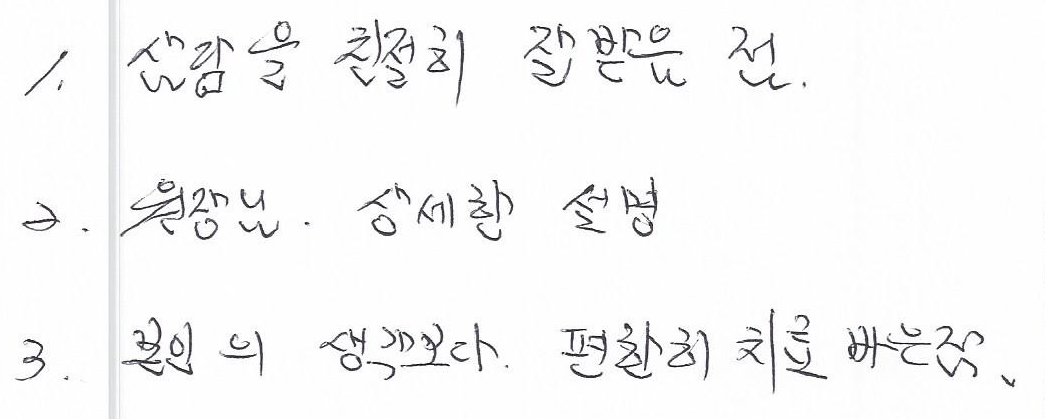 1. 상담을 친절히 잘받은 점.
2. 원장님. 상세한 설명
3. 본인의 생각보다. 편한히 치료 바는점.